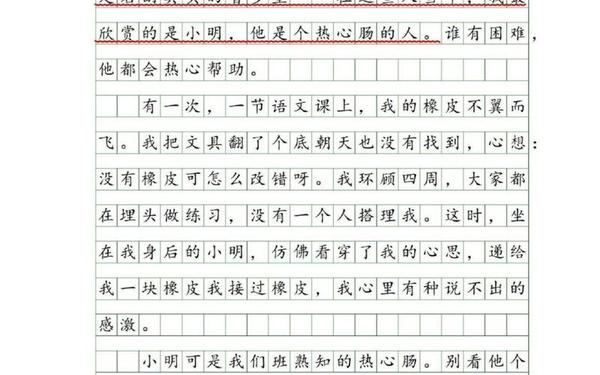 欣赏的是小明，他是个热心肠的人。谁有困难，
他都会热心帮助。
有一次，一节语文课上，我的橡皮不翼而
飞。我把文具翻了个底朝天也没有找到，心想：
没有橡皮可怎么改错呀。我环顾四周，大家都
在埋头做练习，没有一个人搭理我。这时，坐
在我身后的小明，仿佛看穿了我的心思，递给
我一块橡皮我接过橡皮，我心里有种说不出的
感激。
小明可是我们班熟知的热心肠。别看他个